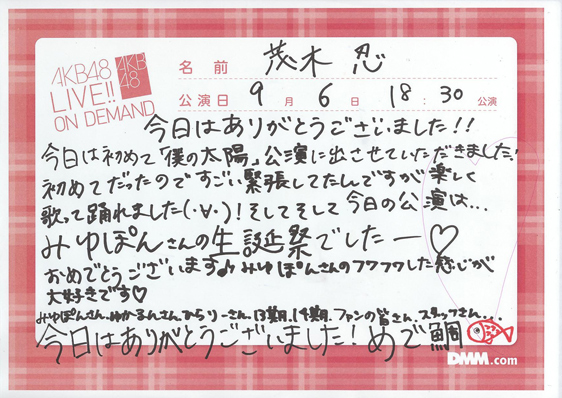 AKB48
LIVE!!
ON DEMAND
AKB
48
名前 茂木 忍
公演日 9月 6日 18:30 公演
今日はありがとうございました!!
今日は初めて「僕の太陽」公演に出させていただきました!
初めてだったのですごい緊張してたんですが楽しく
歌って踊れました(・∀・)!そしてそして今日の公演は...
みゆぽんさんの生誕祭でしたー♡
おめでとうございます♪みゆぽんさんのフワフワした感じが
大好きです♡
みゆぽんさん、ゆかるんさん、ひらりーさん、13期、14期、ファンの皆さん、スタッフさん...
今日はありがとうございました!めで鯛
DMM.com